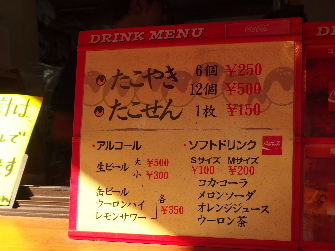 DRINK MENU
Coca-Cola
たこやき 6個 ¥250
12個 ¥500
たこせん 1枚 ¥150
・アルコール
生ビール 大 ¥500
小 ¥300
缶ビール
ウーロンハイ 各 ¥350
レモンサワー
・ソフトドリンク
Coca-Cola
Sサイズ Mサイズ
¥100 ¥200
コカ・コーラ
メロンソーダ
オレンジジュース
ウーロン茶
は、
で
す